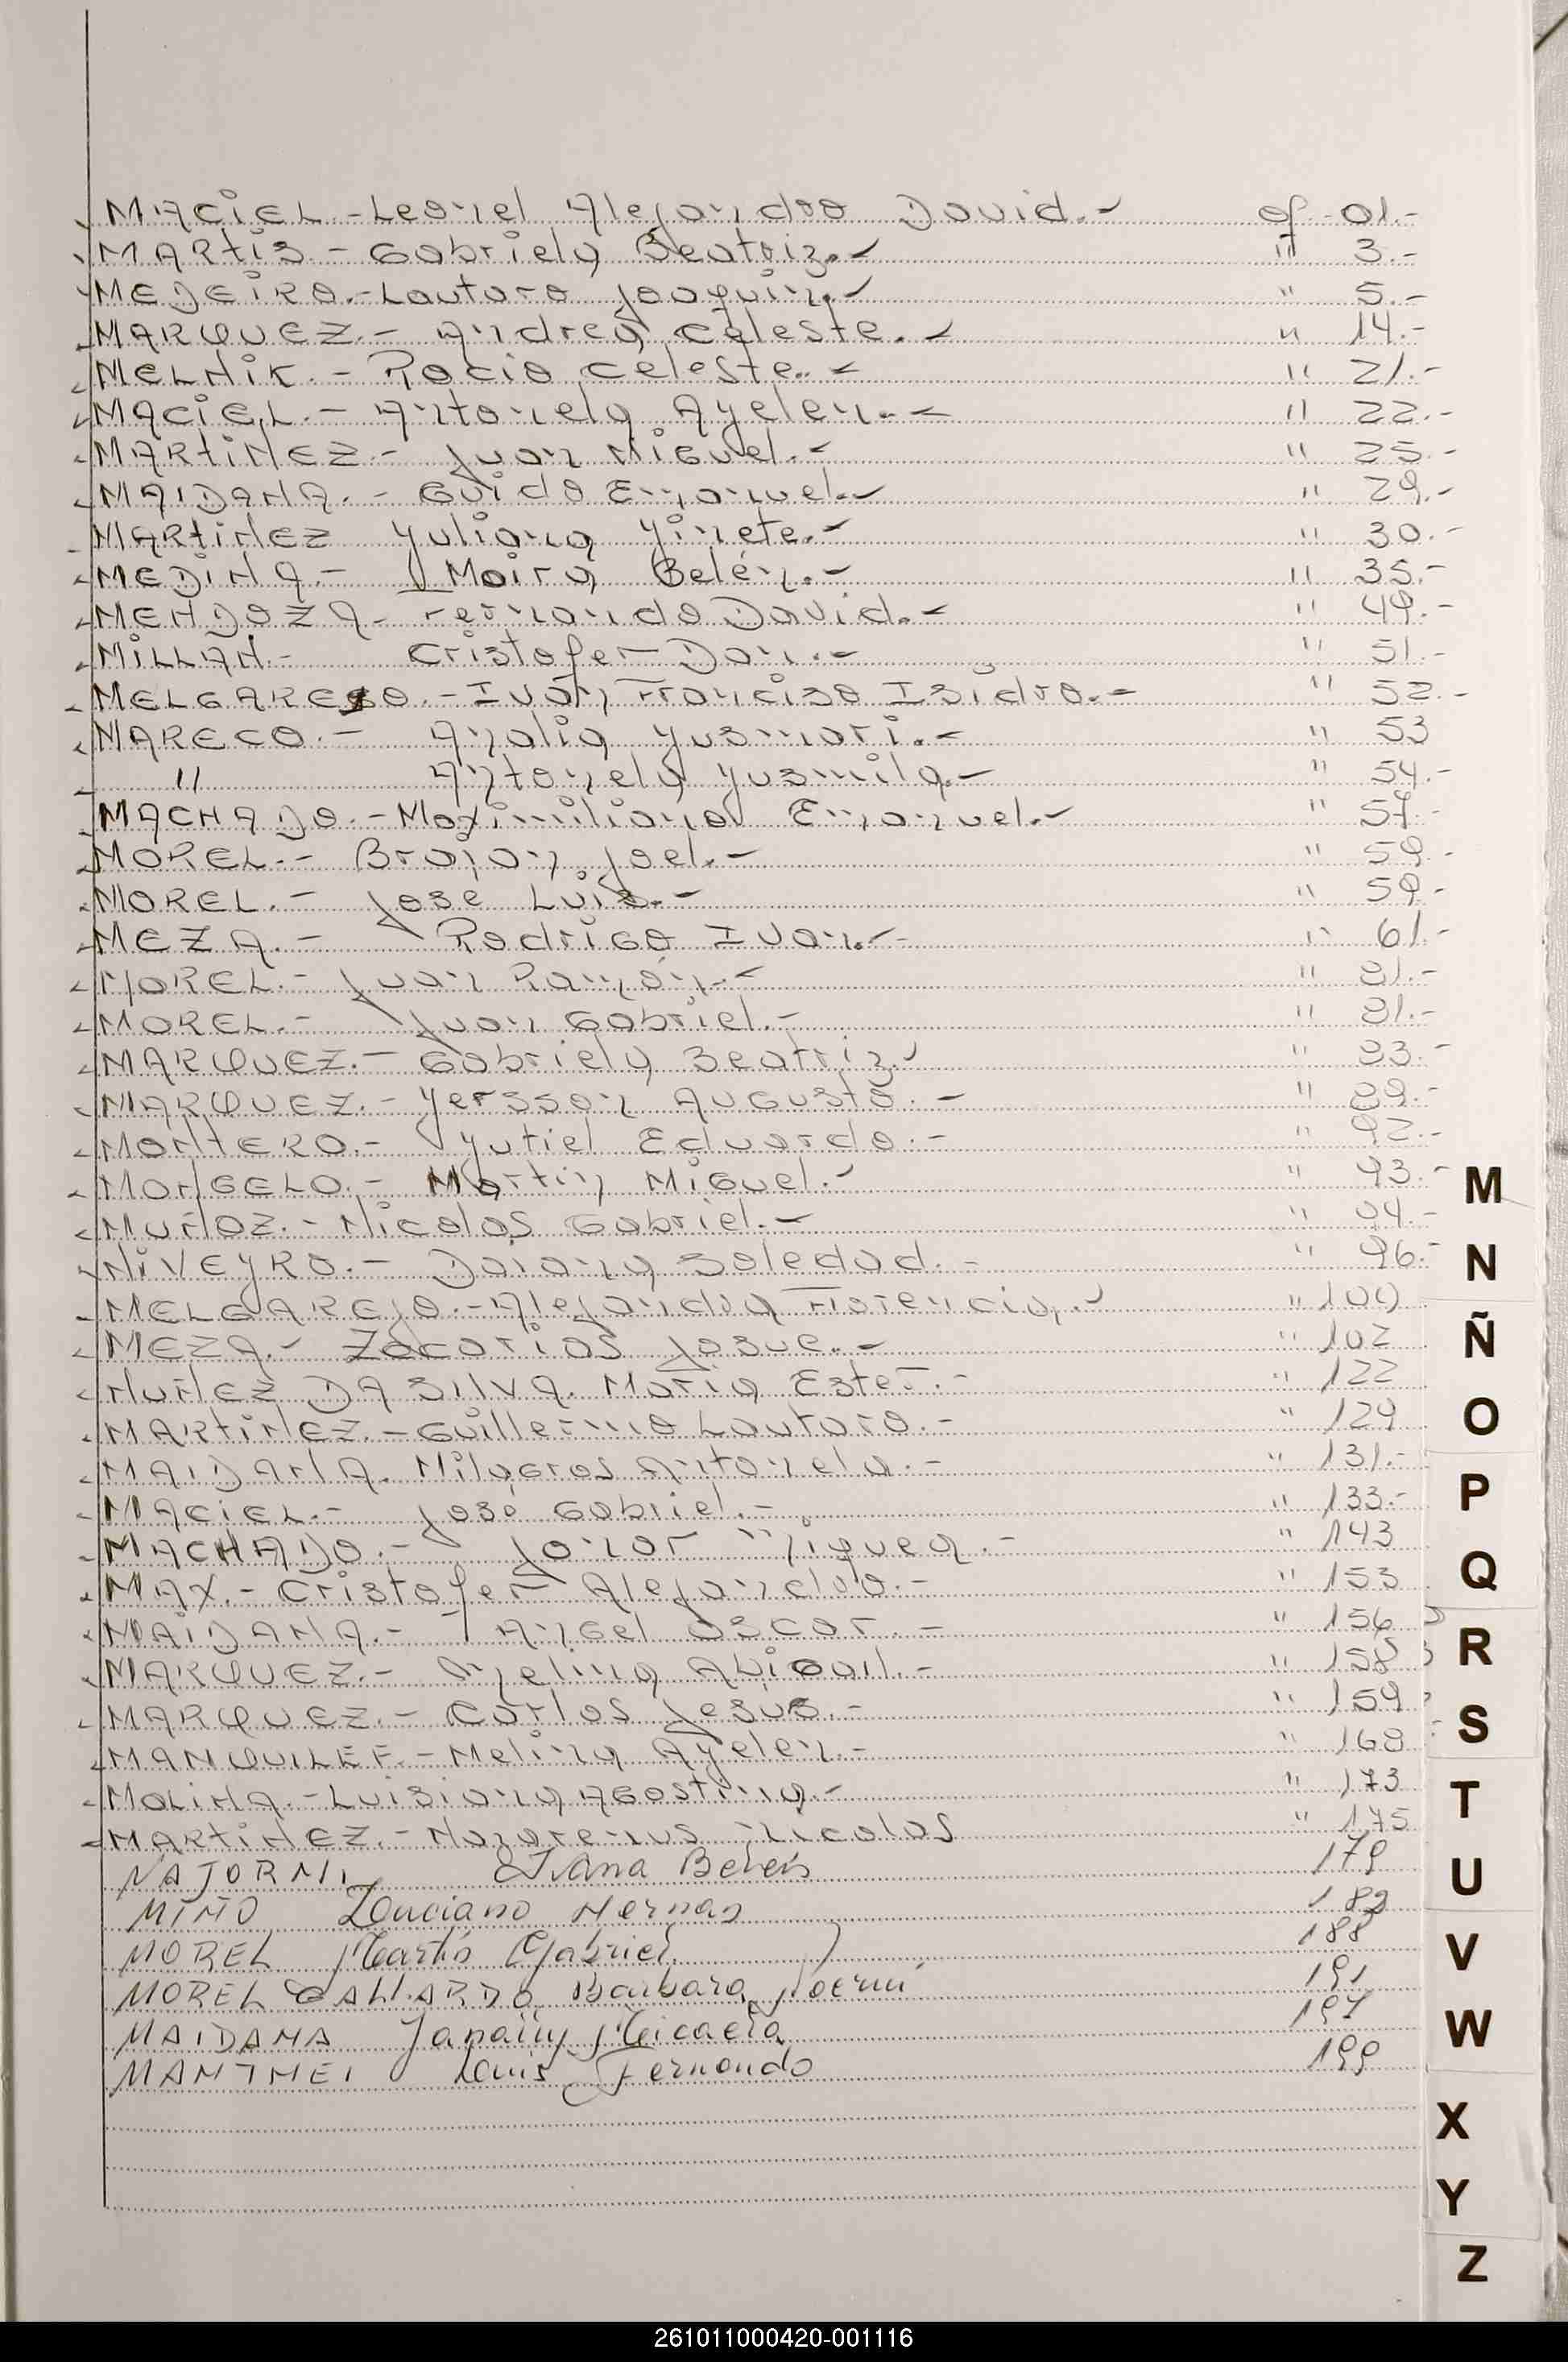 MACIEL.- Leonel Alejandro David.- of 01.-
MARTIS.- Gabriela Beatriz.- " 3.-
MEDEIRO.- Lautaro Joaquin.- " 5.-
MARQUEZ.- Andrea Celeste.- " 14.-
MELNIK.- Rocio Celeste.- " 21.-
MACIEL.- Antonela Ayelen.- " 22.-
MARTINEZ.- Juan Miguel.- " 25.-
MAIDANA.- Guido Emanuel.- " 29.-
MARTINEZ Yuliana Yinete.- " 30.-
MEDINA.- Moira Belén.- " 35.-
MENDOZA.- Fernando David.- " 49.-
MILLAN.- Cristofer Dan.- " 51.-
MELGAREJO.- Ivan Franciso Isidro.- " 52.-
MARECO.- Analia Yusmari.- " 53
" Antonela Yusmila.- " 54.-
MACHADO.- Maximiliano Emanuel.- " 57.-
MOREL.- Braian Joel.- " 59.-
MOREL.- Jose Luis.- " 59.-
MEZA.- Rodrigo Ivan.- " 61.-
MOREL.- Juan Ramón.- " 81.-
MOREL.- Juan Gabriel.- " 81.-
MARQUEZ.- Gabriela Beatriz.- " 83.-
MARQUEZ.- Yersson Augusto.- " 89.-
MONTERO.- Yutiel Eduardo.- " 92.-
MONGELO.- Martin Miguel.- " 93.-
MUÑOZ.- Nicolas Gabriel.- " 94.-
NIVEYRO.- Daiana Soledad.- " 96.-
MELGAREJO.- Alejandra Florencia.- " 100
MEZA.- Zacarias Josue.- " 102
NUÑEZ DA SILVA. Maria Ester.- " 122
MARTINEZ.- Guillermo Lautaro.- " 129
MAIDANA. Milagros Antonela.- " 131.-
MACIEL.- José Gabriel.- " 133.-
MACHADO.- Jonar " 143
MAX.- Cristofer Alejandro.- " 153
MAIDANA.- Angel Oscar.- " 156
MARQUEZ.- Abigail.- " 158
MARQUEZ.- Carlos Jesus.- " 159
MANQUILEF.- Melina Ayelen.- " 168
MOLINA.- Luisiana Agostina.- " 173
MARTINEZ.- Nazarenus Nicolas " 175
NAJORMI Ivana Belén 179
MIÑO Luciano Hernan 182
MOREL Martin Gabriel 188
MOREL GALLARDO Barbara Noemi 191
MAIDANA Micaela 197
Luis Fernando 199
M
N
Ñ
O
P
Q
R
S
T
U
V
W
X
Y
Z
261011000420-001116